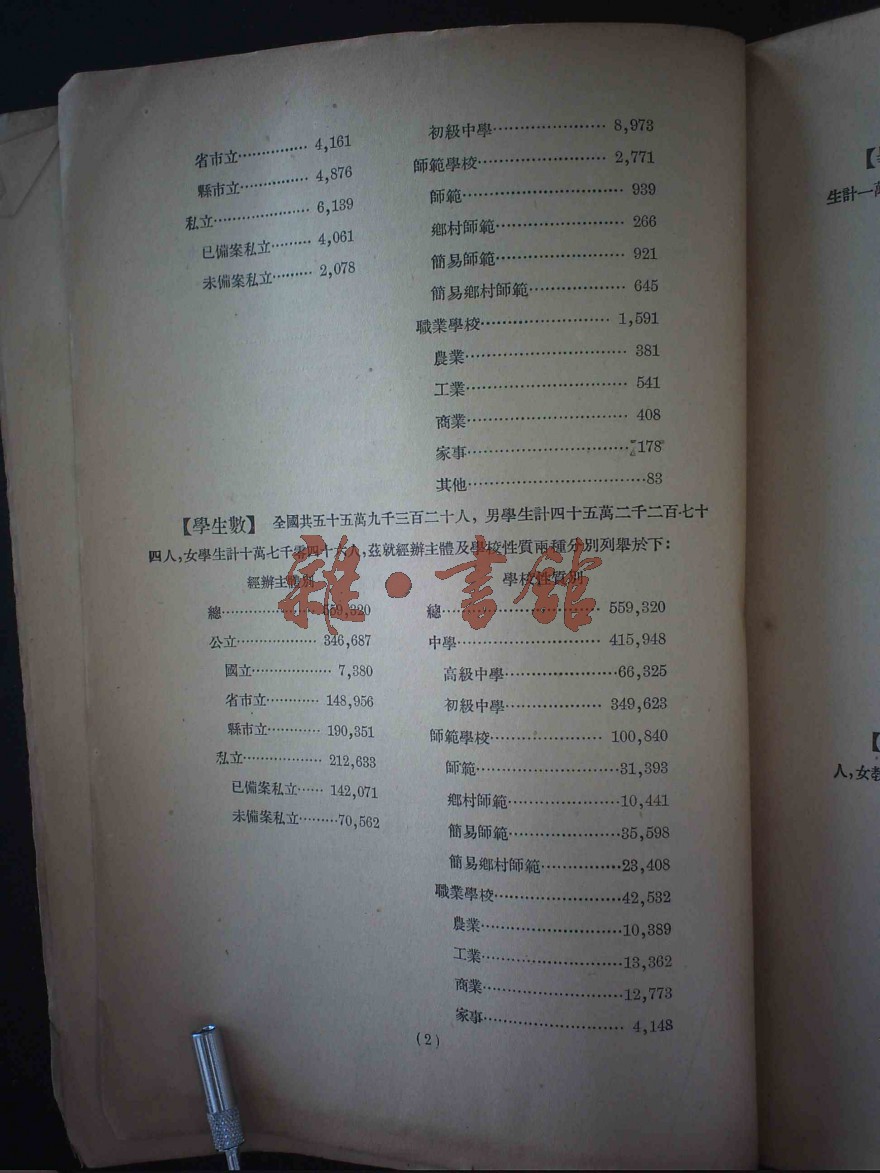 省市立…………… 4,161
縣市立…………… 4,876
私立………………… 6,139
已備案私立……… 4,061
未備案私立……… 2,078
初級中學………………… 8,973
師範學校……………………… 2,771
師範…………………………… 939
鄉村師範……………………… 266
簡易師範……………………… 921
簡易鄉村師範……………… 645
職業學校……………………… 1,591
農業…………………………… 381
工業…………………………… 541
商業…………………………… 408
家事……………………………178
其他………………………………83
【學生數】 全國共五十五萬九千三百二十人，男學生計四十五萬二千二百七十
四人，女學生計十萬七千零四十六人，茲就經辦主體及學校性質兩種分別列舉於下：
經辦主體別
總……………… 559,320
公立……………… 346,687
國立……………… 7,380
省市立………… 148,956
縣市立………… 190,351
私立……………… 212,633
已備案私立…… 142,071
未備案私立………70,562
學校性質別
總…………………………… 559,320
中學……………………… 415,948
高級中學…………………66,325
初級中學………………… 349,623
師範學校………………… 100,840
師範…………………………31,393
鄉村師範…………………10,441
簡易師範…………………35,598
簡易鄉村師範……………23,408
職業學校……………………42,532
農業…………………………10,389
工業…………………………13,362
商業…………………………12,773
家事………………………… 4,148
(2)
雜·書館
生計一萬
人，女教